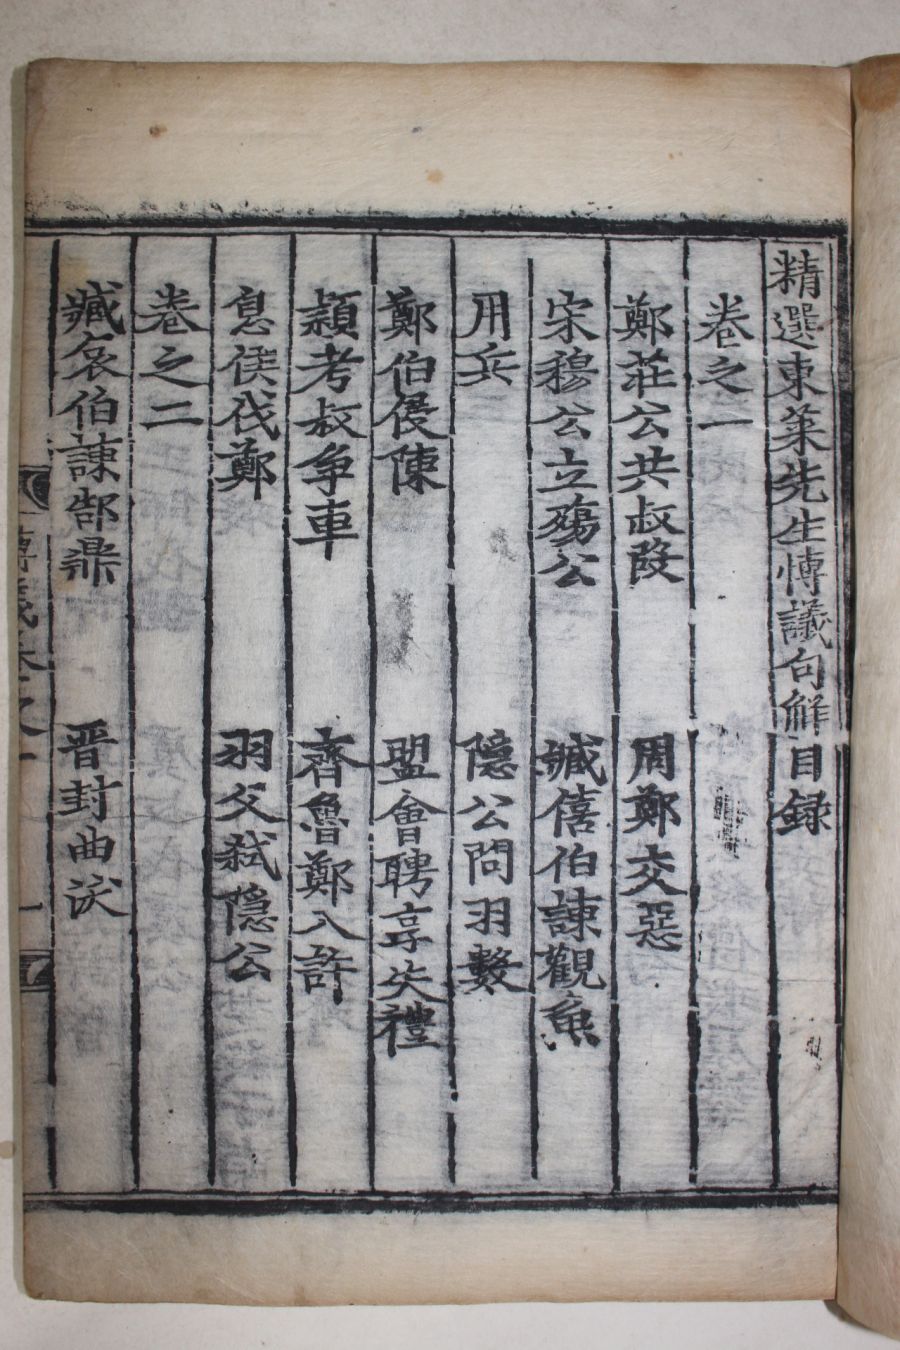 精選東萊先生博議句解目録
卷之一
鄭莊公共叔段 周鄭交惡
宋穆公立殤公 臧僖伯諫觀魚
用兵 隱公問羽數
鄭伯侵陳 盟會聘享失禮
穎考叔争車 齊魯鄭入許
息侯伐鄭 羽父弑隠公
卷之二
臧哀伯諫郜鼎 晋封曲沃